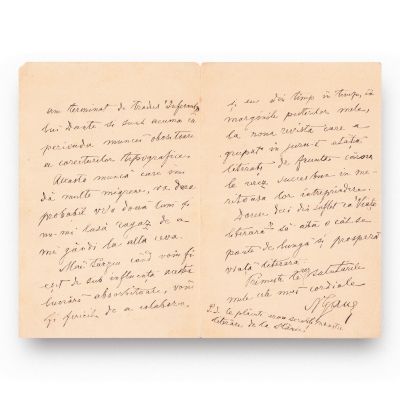 am terminat de tradus "Infernul"
lui Dante și sunt acuma în
perioada muncei obositoare
a corecturilor tipografice.
Această muncă care vă
dă multe migrene, va dura
probabil vr'o două luni și
nu-mi lasă răgaz de a
mă gândi la altă ceva.
Mai târziu când voiu fi
eșit de sub influența acestei
lucrări absorbitoare, voiu
fi fericit de a colabora,
și eu din timp în timp, în
marginile puterilor mele,
la noua revistă care a
grupat în juru-i atâția
literați de frunte cărora
le urez succes bun in me-
ritoasa lor întreprindere.
Doresc deci din suflet ca "Viața
literară" să aibă o cât se
poate de lungă și prosperă
viață literară.
Primește te rog salutările
mele cele mai cordiale
N Gane
P.S.
literare de la